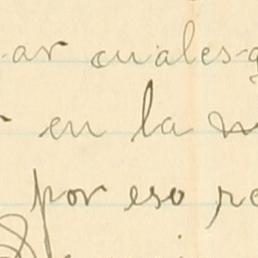 ar cuales-
en la
por eso